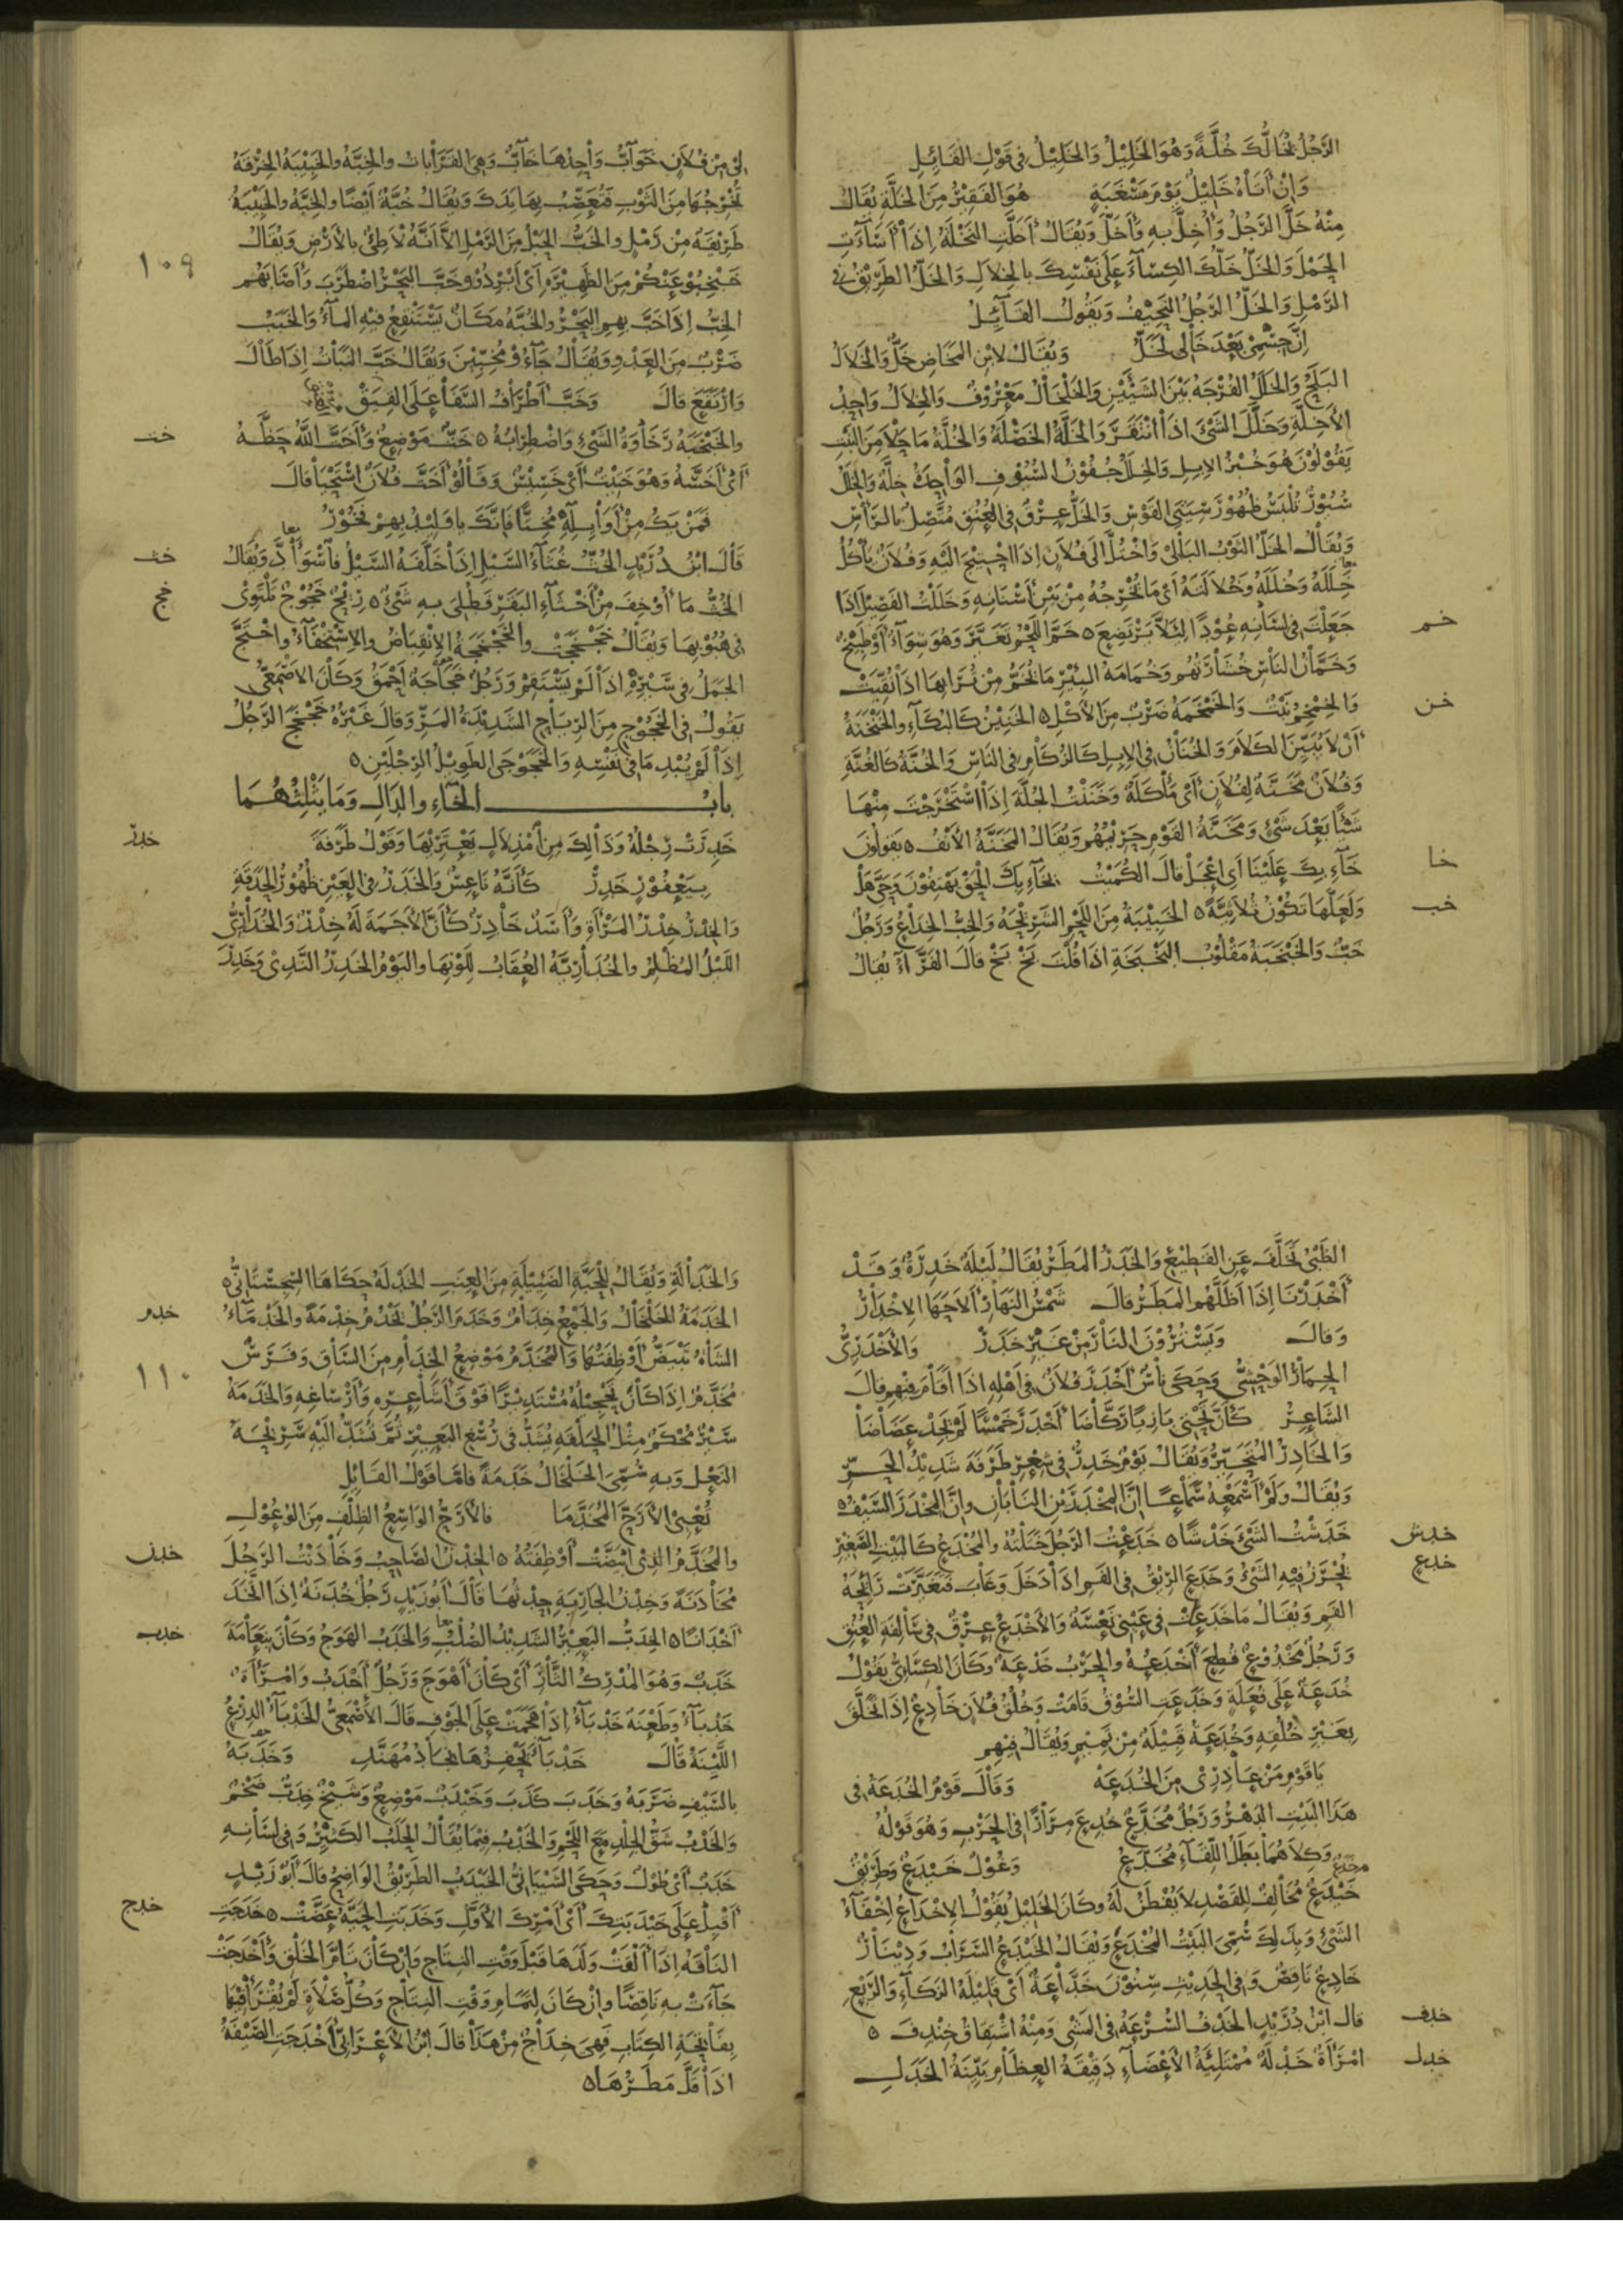 الرَّجُلُ يُخَالُّكَ خُلَّةً وَهُوَ الخَلِيْلُ وَالخَلِيْلُ فِى قَوْلِ القَائِلِ
وَاِنْ أَتَاهُ خَلِيْلٌ يَوْمَ مَسْغَبَةٍ هُوَ الفَقِيْرُ مِنَ الخَلَّةِ يُقَالُ
مِنْهُ خَلَّ الرَّجُلُ وَأُخِلَّ بِهِ وَأَخَلَّ وَيُقَالُ أَخَلَّتِ النَّخْلَةُ اِذَا أَسَآءَتِ
الحَمْلَ وَالخَلُّ خَلُّكَ الكِسَآءَ عَلَى نَفْسِكَ بِالخِلَالِ وَالخَلُّ الطَّرِيْقُ فى
الرَّمْلِ وَالخَلُّ الرَّجُلُ النَّحِيْفُ وَيَقُولُ القَآئِلُ
اِنَّ جِسْمِىْ بَعْدَ خَالِى لَخَلُّ وَيُقَالُ لِابْنِ المَخَاضِ خَلٌّ وَالخَلَالُ
البَلَحُ وَالخَلَلُ الفُرْجَةُ بَيْنَ الشَّيْئَيْنِ وَالخَلْخَالُ مَعْرُوْفٌ وَالخِلَالُ وَاحِدُ
الأَخِلَّةِ وَخَلَّلَ الشَّىْءُ اِذَا افْتَقَرَ وَالخَلَّةُ الخَصْلَةُ وَالخُلَّةُ مَا خَلَا مِنَ النَّبْتِ
يَقُوْلُوْنَ هُوَ خُبْزُ الاِبِلِ وَالخِلَلُ جُفُوْنُ السُّيُوْفِ الوَاحِدَةُ خِلَّةٌ وَالخِلَلُ
سُيُوْرٌ تُلْبَسُ ظُهُوْرَ سِيَتَىِ القَوْسِ وَالخَلُّ عِرْقٌ فِى العُنُقِ مُتَّصِلٌ بِالرَّأْسِ
وَيُقَالُ الخَلُّ الثَّوْبُ البَالِىْ وَاخْتُلَّ اِلَى فُلَانٍ اِذَا احْتِيْجَ اِلَيْهِ وَفُلَانٌ يَأْكُلُ
خِلَلَهُ وَخُلَلَهُ وَخُلَالَتَهُ أَىْ مَا يُخْرِجُهُ مِنْ بَيْنِ أَسْنَانِهِ وَخَلَلْتُ الفَصِيْلَ اِذَا
خم جَعَلْتَ فِى لِسَانِهِ عُوْدًا لِئَلَّا يَرْتَضِعَ ٥ خَمَّ اللَّحْمُ تَغَيَّرَ وَهُوَ شِوَآءٌ أَوْ طَبِيْخٌ
وَخَمَّانُ النَّاسِ خُشَارَتُهُمْ وَخُمَامَةُ البِئْرِ مَا يُخَمُّ مِنْ تُرَابِهَا اِذَا نُقِّيَتْ
خن وَالخِمْخِمُ نَبْتٌ وَالخَمْخَمَةُ ضَرْبٌ مِنَ الأَكْلِ ٥ الخَنِيْنُ كَالبُكَآءِ وَالخَنْخَنَةُ
أَنْ لَا يُبَيِّنَ الكَلَامَ وَالخُنَانُ فِى الاِبِلِ كَالزُّكَامِ فِى النَّاسِ وَالخُنَّةُ كَالغُنَّةِ
وَفُلَانٌ مَخَنَّةٌ لِفُلَانٍ أَىْ مَأْكَلَةٌ وَخَنَنْتُ الجُلَّةَ اِذَا اسْتَخْرَجْتَ مِنْهَا
شَيْئًا بَعْدَ شَىْءٍ وَمَخَنَّةُ القَوْمِ حَرِيْمُهُمْ وَيُقَالُ المَخَنَّةُ الأَنْفُ ٥ يَقُولُونَ
خا خَآءِ بِكَ عَلَيْنَا أَىِ اعْجَلْ قَالَ الكُمَيْتُ بِخَآءِ بِكَ الحَقْ يَهْتِفُوْنَ وَحَىَّ هَلْ
خب وَلَعَلَّهَا تَكُوْنُ ثُلَاثِيَّةً ٥ الخَبِيْبَةُ مِنَ اللَّحْمِ الشَّرِيْحَةُ وَالخِبُّ الخِدَاعُ وَرَجُلٌ
خَبٌّ وَالخَبْخَبَةُ مَقْلُوْبُ البَخْبَخَةِ اِذَا قُلْتَ بَخْ بَخْ قَالَ الفَرَّآءُ يُقَالُ
لِىْ مِنْ فُلَانٍ خَوَآبُّ وَاحِدُهَا خَآبٌّ وَهِىَ القَرَابَاتُ وَالخِبَّةُ وَالخَبِيْبَةُ الخِرْقَةُ
تُخْرِجُهَا مِنَ الثَّوْبِ فَتُعَصِّبُ بِهَا يَدَكَ وَيُقَالُ خُبَّةٌ أَيْضًا وَالخِبَّةُ وَالخَبِيْبَةُ
طَرِيْقَةٌ مِنْ رَمْلٍ وَالخَبُّ الحَبْلُ مِنَ الرَّمْلِ اِلَّا اَنَّهُ لَاطِئٌ بِالأَرْضِ وَيُقَالُ
١٠٩ خَبْخِبُوْا عَنْكُمْ مِنَ الظَّهِيْرَةِ أَىْ أَبْرِدُوْا وَخَبَّ البَحْرُ اضْطَرَبَ وَأَصَابَهُم
الخِبُّ اِذَا خَبَّ بِهِمِ البَحْرُ وَالخُبَّةُ مَكَانٌ يَسْتَنْقِعُ فِيْهِ المَآءُ وَالخَبَبُ
ضَرْبٌ مِنَ العَدْوِ وَيُقَالُ جَآءُوْا مُخِبِّيْنَ وَيُقَالُ خَبَّ النَّبَاتُ اِذَا طَالَ
وَارْتَفَعَ قَالَ وَخَبَّ أَطْرَافُ السَّفَا عَلَى القِيَقْ
خت والخَبْخَبَةُ رَخَاوَةُ الشَّىْءِ وَاضْطِرَابُهُ ٥ خَتٌّ مَوْضِعٌ وَأَخَتَّ اللّٰهُ حَظَّهُ
أَىْ أَخَسَّهُ وَهُوَ خَتِيْتٌ أَىْ خَسِيْسٌ وَقَالُوْا أَخَتَّ فُلَانٌ اسْتَحْيَا قَالَ
فَمَنْ يَكُ مِنْ أَوَائِلِهِ مُخِتًّا فَاِنَّكَ يَا وَلِيْدُ بِهِمْ فَخُوْرٌ
خث قَالَ ابْنُ دُرَيْدٍ الخُثُّ غُثَآءُ السَّيْلِ اِذَا خَلَّفَهُ السَّيْلُ فَاسْوَادَّ وَيُقَالُ
خج الخُثُّ مَا أُوْخِفَ مِنْ أَخْثَآءِ البَقَرِ فَطُلِىَ بِهِ شَىْءٌ ٥ رِيْحٌ خَجُوْجٌ تَلْتَوِىْ
فِى هُبُوْبِهَا وَيُقَالُ خَجْخَجَتْ والخَجْخَجَةُ الاِنْقِبَاضُ وَالاِسْتِخْفَآءُ وَاخْتَجَّ
الجَمَلُ فِى سَيْرِهِ اِذَا لَمْ يَسْتَقِمْ وَرَجُلٌ خَجَّاجَةٌ أَحْمَقُ وَكَانَ الاَصْمَعِىُّ
يَقُولُ فِى الخَجُوْجِ مِنَ الرِّيَاحِ الشَّدِيْدَةُ المَرِّ وَقَالَ غَيْرُهُ خَجْخَجَ الرَّجُلُ
اِذَا لَمْ يُبْدِ مَا فِى نَفْسِهِ وَالخَجَوْجَى الطَّوِيْلُ الرِّجْلَيْنِ ٥
بابُ الخَآءِ والدَّالِ وَمَا يَثْلِثُهُمَا
خدر خَدِرَتْ رِجْلُهُ وَذَالِكَ مِنِ امْذِلَالٍ يَعْتَرِيْهَا وَقَوْلُ طَرَفَةَ
بِيَعْفُوْرٍ خَدِرْ كَأَنَّهُ نَاعِسٌ وَالخَدَرُ فِى العَيْنِ ظُهُوْرُ الحَدَقَةِ
وَالخِدْرُ خِدْرُ المَرْأَةِ وَأَسَدٌ خَادِرٌ كَأَنَّ الأَجَمَةَ لَهُ خِدْرٌ وَالخُدَارِىُّ
اللَّيْلُ المُظْلِمُ والخُدَارِيَّةُ العُقَابُ لِلَوْنِهَا وَاليَوْمُ الخَدِرُ النَّدِىُ وَخَدِرَ
الظَّبْىُ تَخَلَّفَ عَنِ القَطِيْعِ وَالخَدَرُ المَطَرُ يُقَالُ لَيْلَةٌ خَدِرَةٌ وَقَدْ
أَخْدَرْنَا اِذَا أَظَلَّهُمِ المَطَرُ قَالَ شَمْسُ النَّهَارِ أَلَاحَهَا الاِخْدَارُ
وَقَالَ وَيَسْتُرُوْنَ النَّارَ مِنْ غَيْرِ خَدَرْ وَالأَخْدَرِىُّ
الحِمَارُ الوَحْشِىُّ وَحَكَى نَاسٌ أَخْدَرَ فُلَانٌ فِى أَهْلِهِ اِذَا أَقَامَ فِيْهِمِ قَالَ
الشَّاعِرُ كَأَنَّ تَحْتِى بَازِيًا رَكَّاضًا أَخْدَرَ خَمْسًا لَمْ يَذُقْ عَضَاضَا
وَالخَادِرُ المُتَحَيِّرُ وَيُقَالُ يَوْمٌ خَدِرٌ فِى شِعْرِ طَرَفَةَ شَدِيْدُ الحَرِّ
وَيُقَالُ وَلَمْ أَسْمَعْهُ سَمَاعًا اِنَّ المِخْدَرَيْنِ النَّابَانِ وَاِنَّ المِخْدَرَ السَّيْفُ ٥
خدش خَدَشْتُ الشَّىْءَ خَدْشًا ٥ خَدَعْتُ الرَّجُلَ خَتَلْتُهُ وَالمُخْدَعُ كَالبَيْتِ الصَّغِيْرِ
خدع يُحْرَزُ فِيْهِ الشَّىْءُ وَخَدَعَ الرِّيْقُ فِى الفَمِ اِذَا دَخَلَ وَغَابَ فَتَغَيَّرَتْ رَائِحَةُ
الفَمِ وَيُقَالُ مَا خَدَعَتْ فِى عَيْنِى نَعْسَةٌ وَالأَخْدَعُ عِرْقٌ فِى سَالِفَةِ العُنُقِ
وَرَجُلٌ مَخْدُوْعٌ قُطِعَ أَخْدَعُهُ وَالحَرْبُ خَدْعَةٌ وَكَانَ الكِسَائِىُّ يَقُوْلُ
خُدَعَةٌ عَلَى فُعَلَةٍ وَخَدَعَتِ السُّوْقُ قَامَتْ وَخُلُقُ فُلَانٍ خَادِعٌ اِذَا تَخَلَّقَ
بِغَيْرِ خُلُقِهِ وَخُدَعَةُ قَبِيْلَةٌ مِنْ تَمِيْمٍ وَيُقَالُ فِيْهِم
يَا قَوْمِ مَنْ عَاذِرِىْ مِنَ الخُدَعَهْ وَقَالَ قَوْمٌ الخُدَعَةُ فِى
هَذَا البَيْتِ الدَّهْرُ وَرَجُلٌ مُخَدَّعٌ خُدِعَ مِرَارًا فِى الحَرْبِ وَهُوَ قَوْلُهُ
وَكِلَاهُمَا بَطَلُ اللِّقَآءِ مُخَدَّعُ وَغُوْلٌ خَيْدَعٌ وَطَرِيْقٌ
خَيْدَعٌ مُخَالِفٌ لِلقَصْدِ لَا يُفْطَنُ لَهُ وَكَانَ الخَلِيْلُ يَقُوْلُ الاِخْدَاعُ اِخْفَآءُ
الشَّىْءِ وَبِذَلِكَ سُمِّىَ البَيْتُ المُخْدَعَ وَيُقَالُ الخَيْدَعُ السَّرَابُ وَدِيْنَارٌ
خَادِعٌ نَاقِصٌ وَفِى الحَدِيْثِ سِنُوْنَ خَدَّاعَةٌ أَىْ قَلِيْلَةُ الزَّكَآءِ وَالرَّيْعِ
خدف قَالَ ابْنُ دُرَيْدٍ الخَدْفُ السُّرْعَةُ فِى المَشْىِ وَمِنْهُ اشْتِقَاقُ خِنْدِفَ ٥
خدل امْرَأَةٌ خَدْلَةٌ مُمْتَلِئَةُ الأَعْضَآءِ دَقِيْقَةُ العِظَامِ بَيِّنَةُ الخَدَلِ
وَالخَدَالَةِ وَيُقَالُ لِلْحَبَّةِ الضَّئِيْلَةِ مِنَ العِنَبِ الخَدْلَةُ حَكَاهَا السِّجِسْتَانِىُّ ٥
خدم الخَدَمَةُ الخَلْخَالُ وَالجَمْعُ خِدَامٌ وَخَدَمَ الرَّجُلُ يَخْدُمُ خِدْمَةً وَالخَدْمَآءُ
الشَّاةُ تَبْيَضُّ أَوْظِفَتُهَا وَالمُخَدَّمُ مَوْضِعُ الخِدَامِ مِنَ السَّاقِ وَفَرَسٌ
١١٠ مُخَدَّمٌ اِذَا كَانَ تَحْجِيْلُهُ مُسْتَدِيْرًا فَوْقَ أَشَاعِرِهِ وَأَرْسَاغِهِ وَالخَدَمَةُ
سَيْرٌ مُحْكَمٌ مِثْلُ الحَلَقَةِ يُشَدُّ فِى رُسْغِ البَعِيْرِ ثُمَّ تُشَدُّ اِلَيْهِ سَرِيْحَةُ
النَّعْلِ وَبِهِ سُمِّىَ الخَلْخَالُ خَدَمَةً فَامَّا قَوْلُ القَائِلِ
تُعْيِىْ الأَرَحَّ المُخَدَّمَا فَالأَرَحُّ الوَاسِعُ الظِّلْفِ مِنَ الوُعُوْلِ
خدن وَالمُخَدَّمُ الَّذِى ابْيَضَّتْ أَوْظِفَتُهُ ٥ الخِدْنُ الصَّاحِبُ وَخَادَنْتُ الرَّجُلَ
مُخَادَنَةً وَخِدْنُ الجَارِيَةِ حِدْثُهَا قَالَ أَبُوْ زَيْدٍ رَجُلٌ خُدَنَةٌ اِذَا اتَّخَذَ
خدب أَخْدَانًا ٥ الخِدَبُّ البَعِيْرُ الشَّدِيْدُ الصُّلْبُ وَالخَدَبُ الهَوَجُ وَكَانَ بِنَعَامَةَ
خَدَبٌ وَهُوَ المُدْرِكُ الثَّأْرَ أَىْ كَانَ أَهْوَجَ وَرَجُلٌ أَخْدَبُ وَامْرَأَةٌ
خَدْبَآءُ وَطَعْنَةٌ خَدْبَآءُ اِذَا هَجَمَتْ عَلَى الجَوْفِ قَالَ الأَصْمَعِىُّ الخَدْبَآءُ الدِّرْعُ
اللَّيِّنَةُ قَالَ خَدْبَآءُ يَحْفِزُهَا نِجَادُ مُهَنَّدِ وَخَدَبَهُ
بِالسَّيْفِ ضَرَبَهُ وَخَدَبَ كَذَبَ وَخَيْدَبٌ مَوْضِعٌ وَشَيْخٌ خِدَبٌّ ضَخْمٌ
وَالخَدْبُ شَقُّ الجِلْدِ مَعَ اللَّحْمِ وَالخَدْبُ فِيْمَا يُقَالُ الحَلَبُ الكَثِيْرُ وَفِى لِسَانِهِ
خَدَبٌ أَىْ طُوْلٌ وَحَكَى الشَّيْبَانِىُّ الخَيْدَبُ الطَّرِيْقُ الوَاضِحُ قَالَ أَبُوْ زَيْدٍ
خدج أَقْبِلْ عَلَى خَيْدَبَتِكَ أَىْ أَمْرِكَ الأَوَّلِ وَخَدَبَتِ الحَيَّةُ عَضَّتْ ٥ خَدَجَتِ
النَّاقَةُ اِذَا أَلْقَتْ وَلَدَهَا قَبْلَ وَقْتِ النِّتَاجِ وَاِنْ كَانَ تَامَّ الخَلْقِ وَأَخْدَجَتْ
جَآءَتْ بِهِ نَاقِصًا وَاِنْ كَانَ لِتَمَامِ وَقْتِ النِّتَاجِ وَكُلُّ صَلَاةٍ لَمْ يُقْرَأْ فِيْهَا
بِفَاتِحَةِ الكِتَابِ فَهِىَ خِدَاجٌ مِنْ هَذَا قَالَ ابْنُ الأَعْرَابِىِّ أَخْدَجَتِ الصَّيْفَةُ
اِذَا قَلَّ مَطَرُهَا ٥